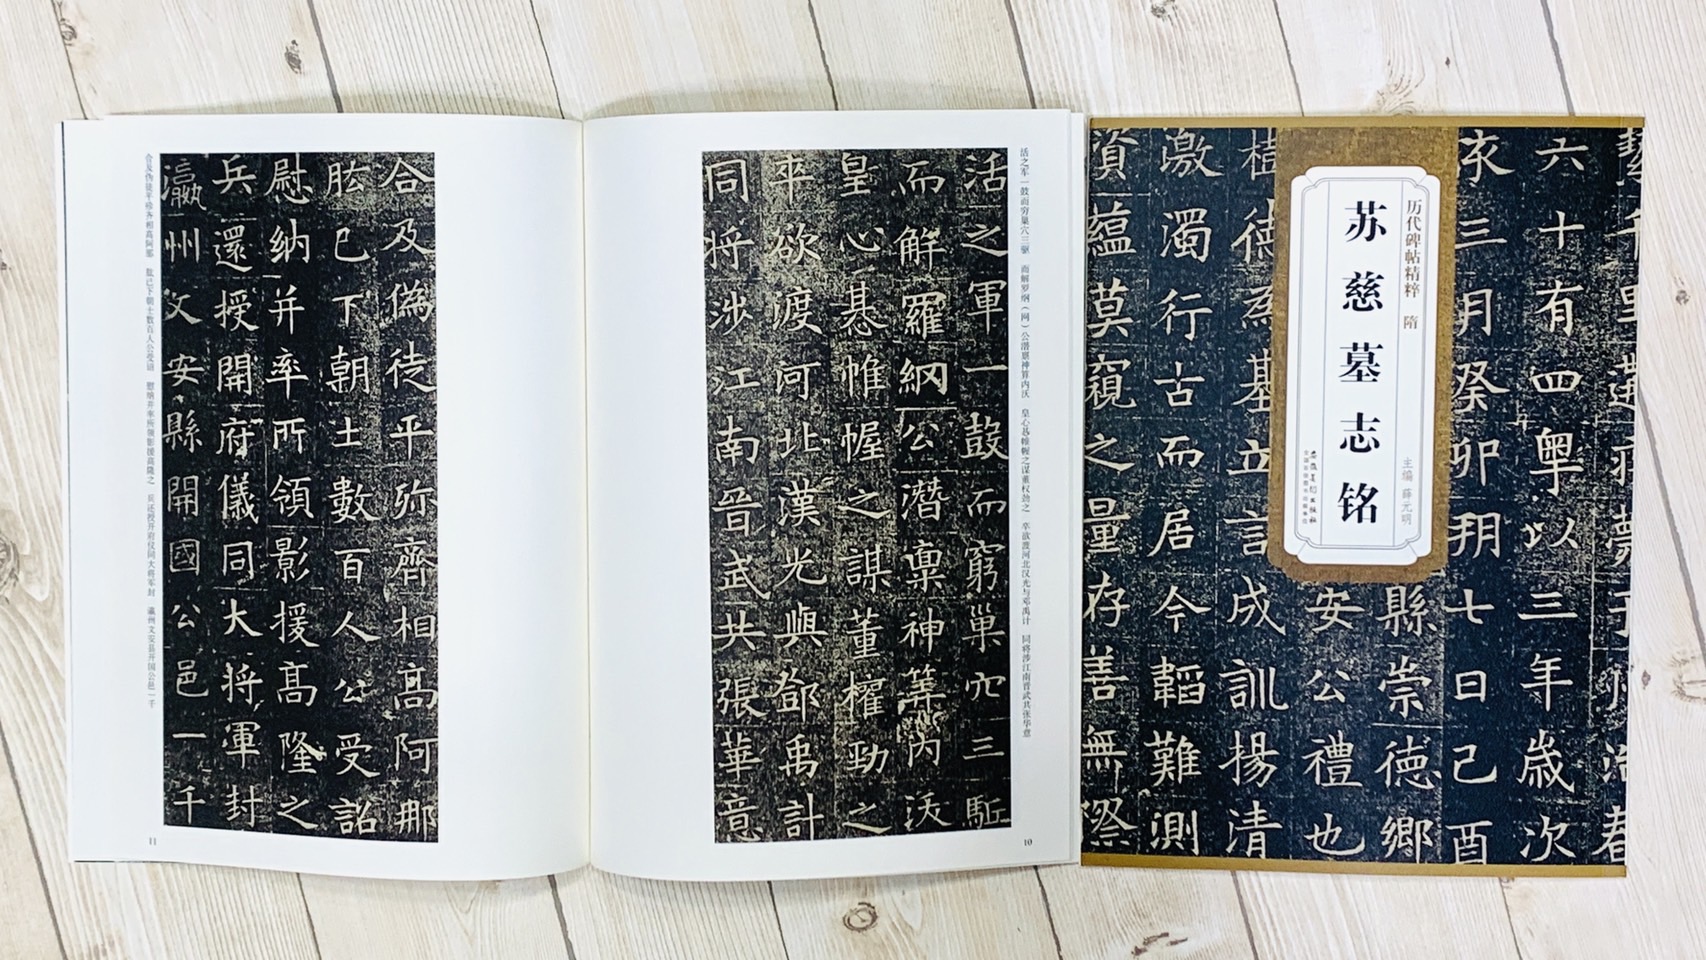 活之军一鼓而穷巢穴三驱 而解罗纲（网）公潜禀神算内沃 皇心惎帷幄之谋董权劲之 卒欲渡河北汉光与邓禹计 同将涉江南晋武共张华意
活之軍一鼓而窮巢穴三駈
而解羅網公潛稟神筭內沃
皇心惎帷幄之謀董櫂勁之
卒欲渡河北漢光與鄧禹計
同将涉江南晉武共張華意
10
合及伪徒平殄齐相高阿那 肱已下朝士数百人公受诏 慰纳并率所领影援高隆之 兵还授开府仪同大将军封 瀛州文安县开国公邑一千
合及偽徒平殄齊相高阿那
肱已下朝士數百人公受詔
慰納并率所領影援高隆之
兵還授開府儀同大将軍封
瀛州文安縣開國公邑一千
11
历代碑帖精粹 隋
苏慈墓志铭
主编 薛元明
六十有四粤以三年歲次
三月癸卯朔七日己酉
縣崇德鄉
安公禮也
德
立言成訓揚清
激濁行古而居今韜難測
資蘊莫窺之量存善無際